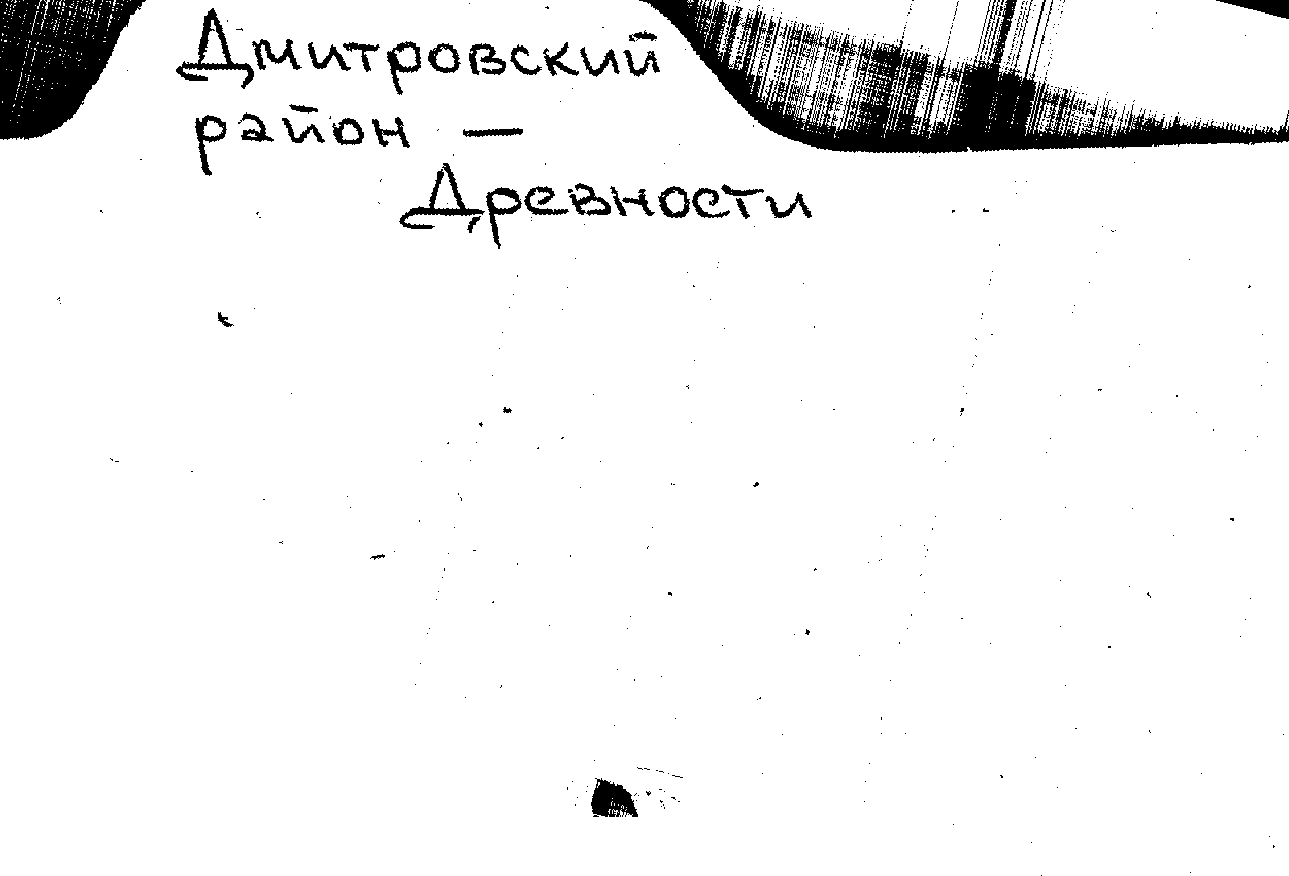 Дмитровский
район —
Древности